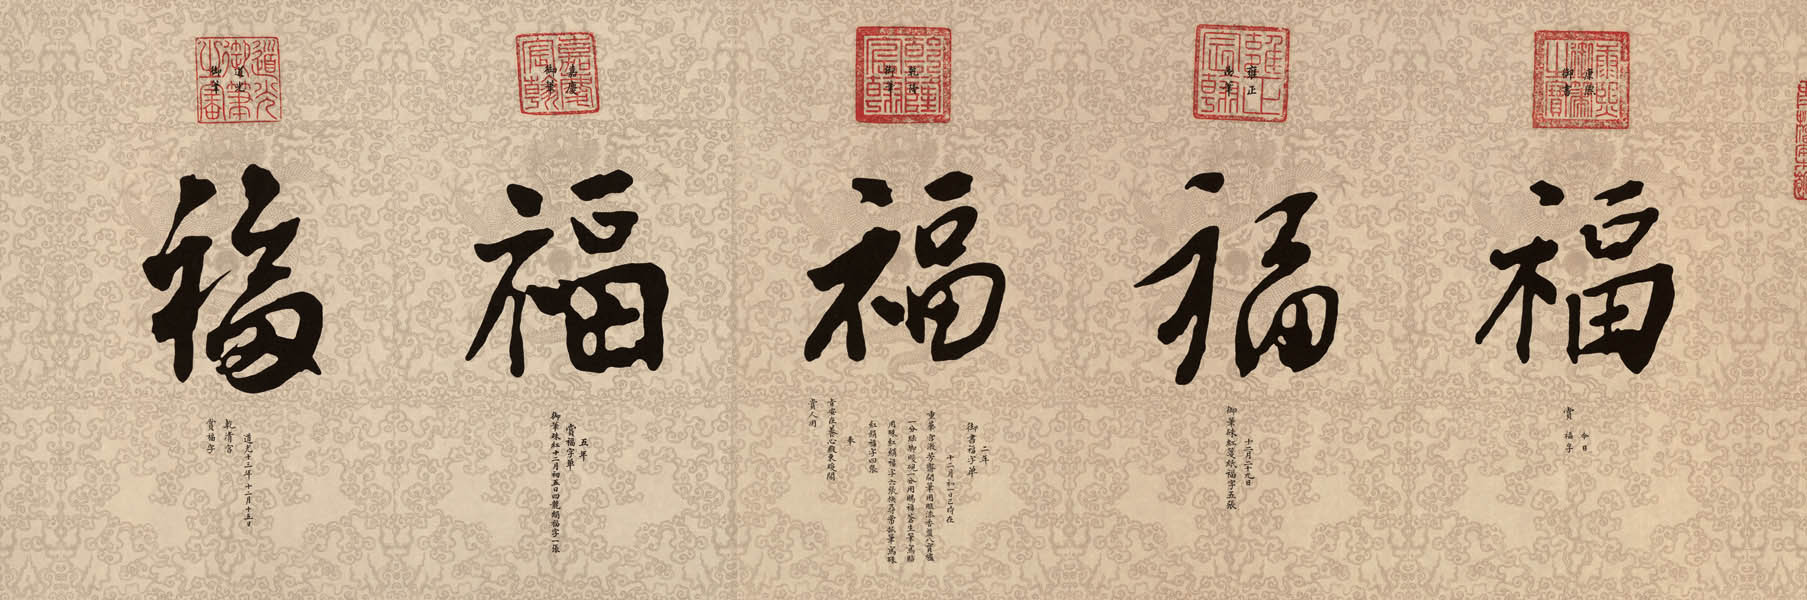 康熙
御書
康熙御筆之寶
福
今日
賞福字
雍正
御筆
雍正宸翰
福
十二月二十九日
御筆硃紅箋紙福字五張
乾隆
御筆
乾隆宸翰
福
二年
御書福字單
十二月初一日巳時在
重華宮漱芳齋開筆用
用硃紅絹福字六張
紅絹福字四張
奉
旨安在養心殿東暖閣
賞人用
嘉慶
御筆
嘉慶宸翰
福
五年
賞福字單
御筆硃紅十二月初五日四龍絹福字一張
道光
御筆
道光御筆之寶
福
道光十三年十二月十五日
乾清宮
賞福字